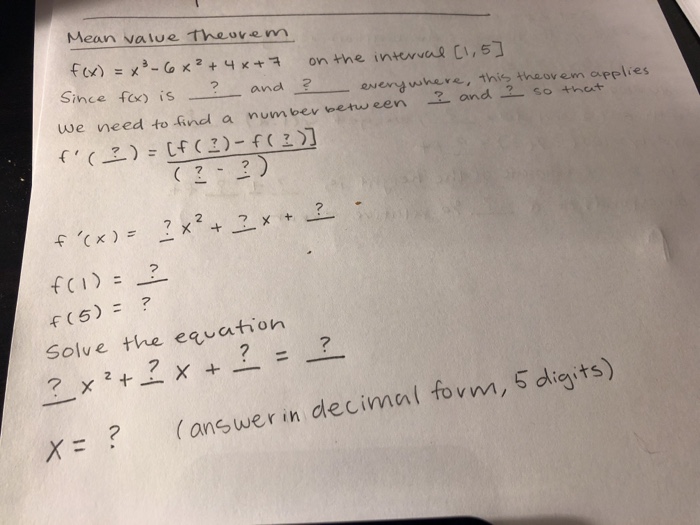 Mean value theorem
f(x) = x³ - 6x² + 4x + 7 on the interval [1,5]
Since f(x) is ? and ? everywhere, this theorem applies
We need to find a number between ? and ? so that
f'(?) = [f(?) - f(?)]
(? - ?)
f'(x) = ?x² + ?x + ?
f(1) = ?
f(5) = ?
Solve the equation
?x² + ?x + ? = ?
X = ? (answer in decimal form, 5 digits)